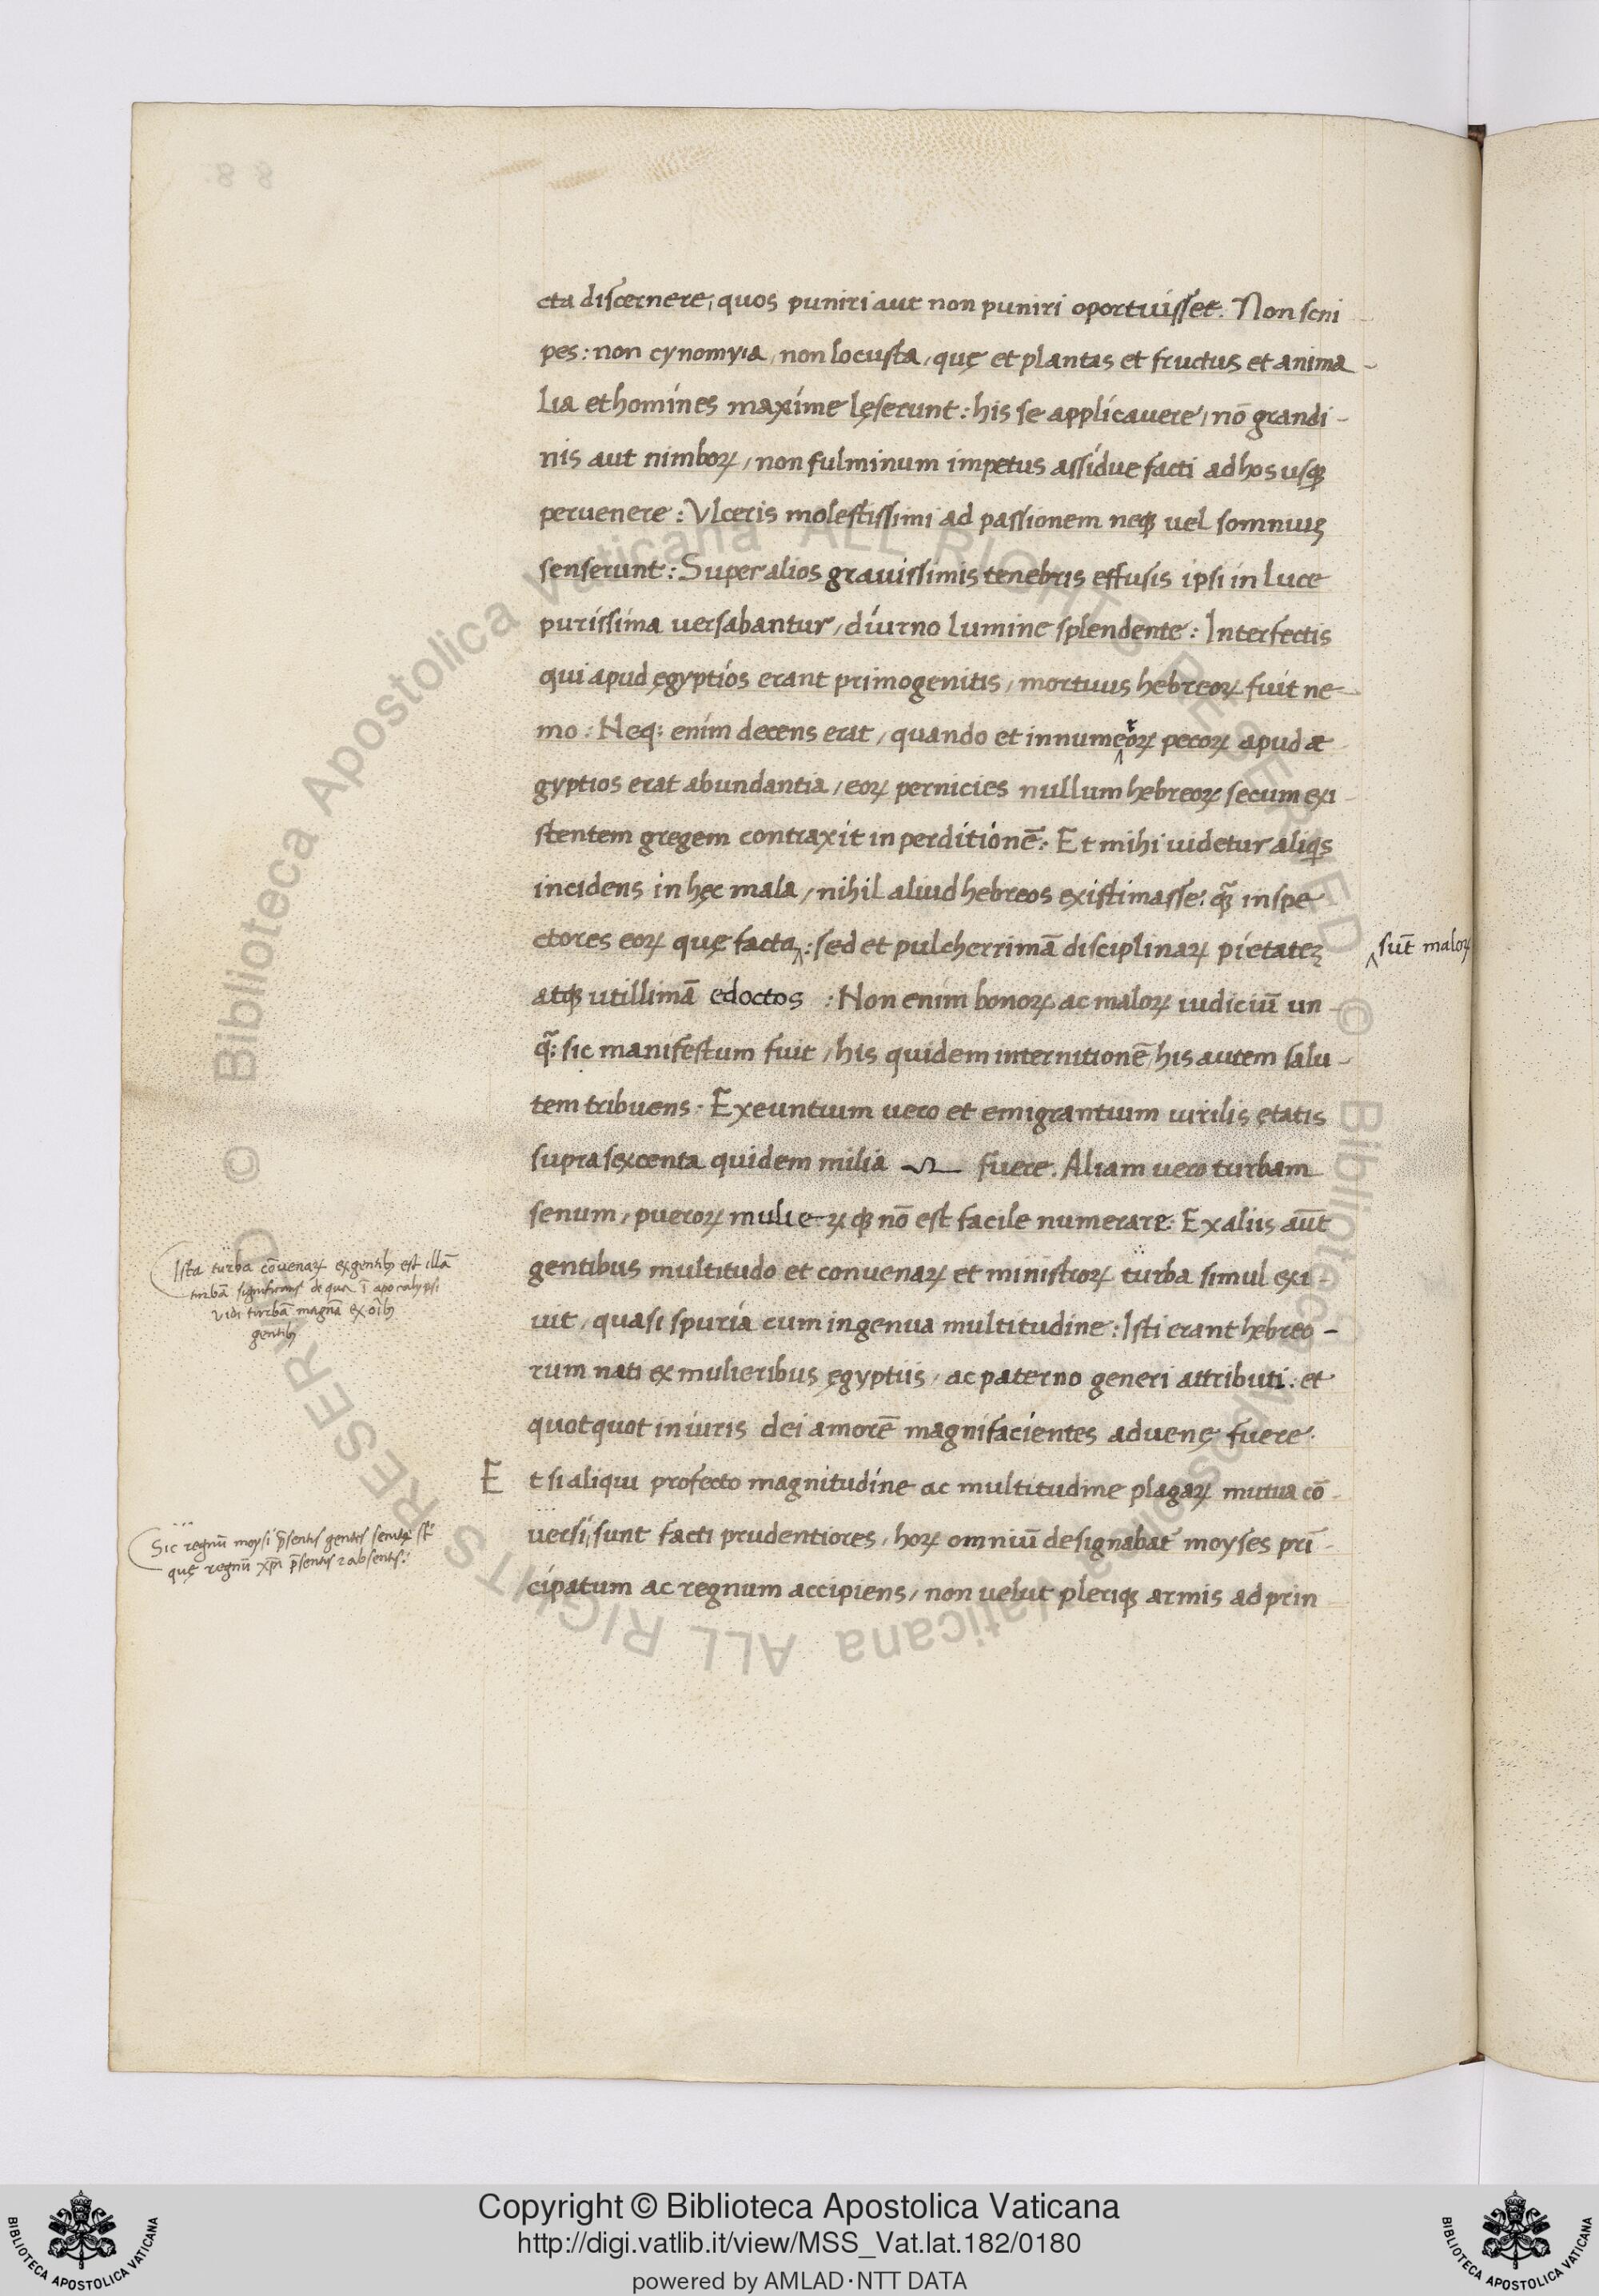 cta discernere, quos puniri aut non puniri oportuisset. Non scni
pes: non cynomyia, non locusta, quę et plantas et fructus et anima-
lia et homines maxime lęserunt: his se applicauere, nō grandi-
nis aut nimboꝝ, non fulminum impetus assidue facti ad hos usqꝫ
peruenere: Vlceris molestissimi ad passionem neqꝫ vel somnius
senserunt: Super alios grauissimis tenebris effusis ipsi in luce
purissima uersabantur, diurno lumine splendente: Interfectis
qui apud ęgyptios erant primogenitis, mortuus hebreoꝝ fuit ne-
mo: Neq: enim decens erat, quando et innumeroꝝ pecoꝝ apud æ
gyptios erat abundantia, eoꝝ pernicies nullum hebreoꝝ secum exi-
stentem gregem contraxit in perditionē: Et mihi uidetur aliqis
incidens in hęc mala, nihil aliud hebreos existimasse: qꝫ̄ inspe
ctores eoꝝ quę facta: sed et pulcherrimā disciplinaꝝ pietateꝫ
sūt maloꝝ
atqꝫ utillimā edoctos : Non enim bonoꝝ ac maloꝝ iudiciū un-
q̄: sic manifestum fuit, his quidem internitionē, his autem salu-
tem tribuens. Exeuntium uero et emigrantium uirilis ętatis
supra sexcenta quidem milia fuere. Aliam uero turbam
senum, pueroꝝ mulieꝝ qꝫ nō est facile numerare: Ex aliis aūt
gentibus multitudo et conuenaꝝ et ministroꝝ turba simul exi-
uit, quasi spuria cum ingenua multitudine: Isti erant hebreo-
rum nati ex mulieribus ęgyptiis, ac paterno generi attributi: et
quotquot iniuris dei amorē magnifacientes aduenę fuere.
Et si aliqui profecto magnitudine ac multitudine plagaꝝ mutua cō-
uersi, sunt facti prudentiores, hoꝝ omniū designabat moyses pri̅-
cipatum ac regnum accipiens, non uelut pleriqꝫ armis ad prin
Ista turba cōuenaꝝ ex gentibꝫ est illā
turbā significans de qua ī apocalypsi
vidi turbā magnā ex oībꝫ
gentibꝫ
Sic regnū moysi p̄sentis gentis
quę regnū xp̄i p̄sentis absentis:
Copyright © Biblioteca Apostolica Vaticana
http://digi.vatlib.it/view/MSS_Vat.lat.182/0180
powered by AMLAD·NTT DATA
BIBLIOTECA APOSTOLICA VATICANA
BIBLIOTECA APOSTOLICA VATICANA
© Biblioteca Apostolica Vaticana ALL RIGHTS RESERVED © Biblioteca Apostolica Vaticana ALL RIGHTS RESERVED